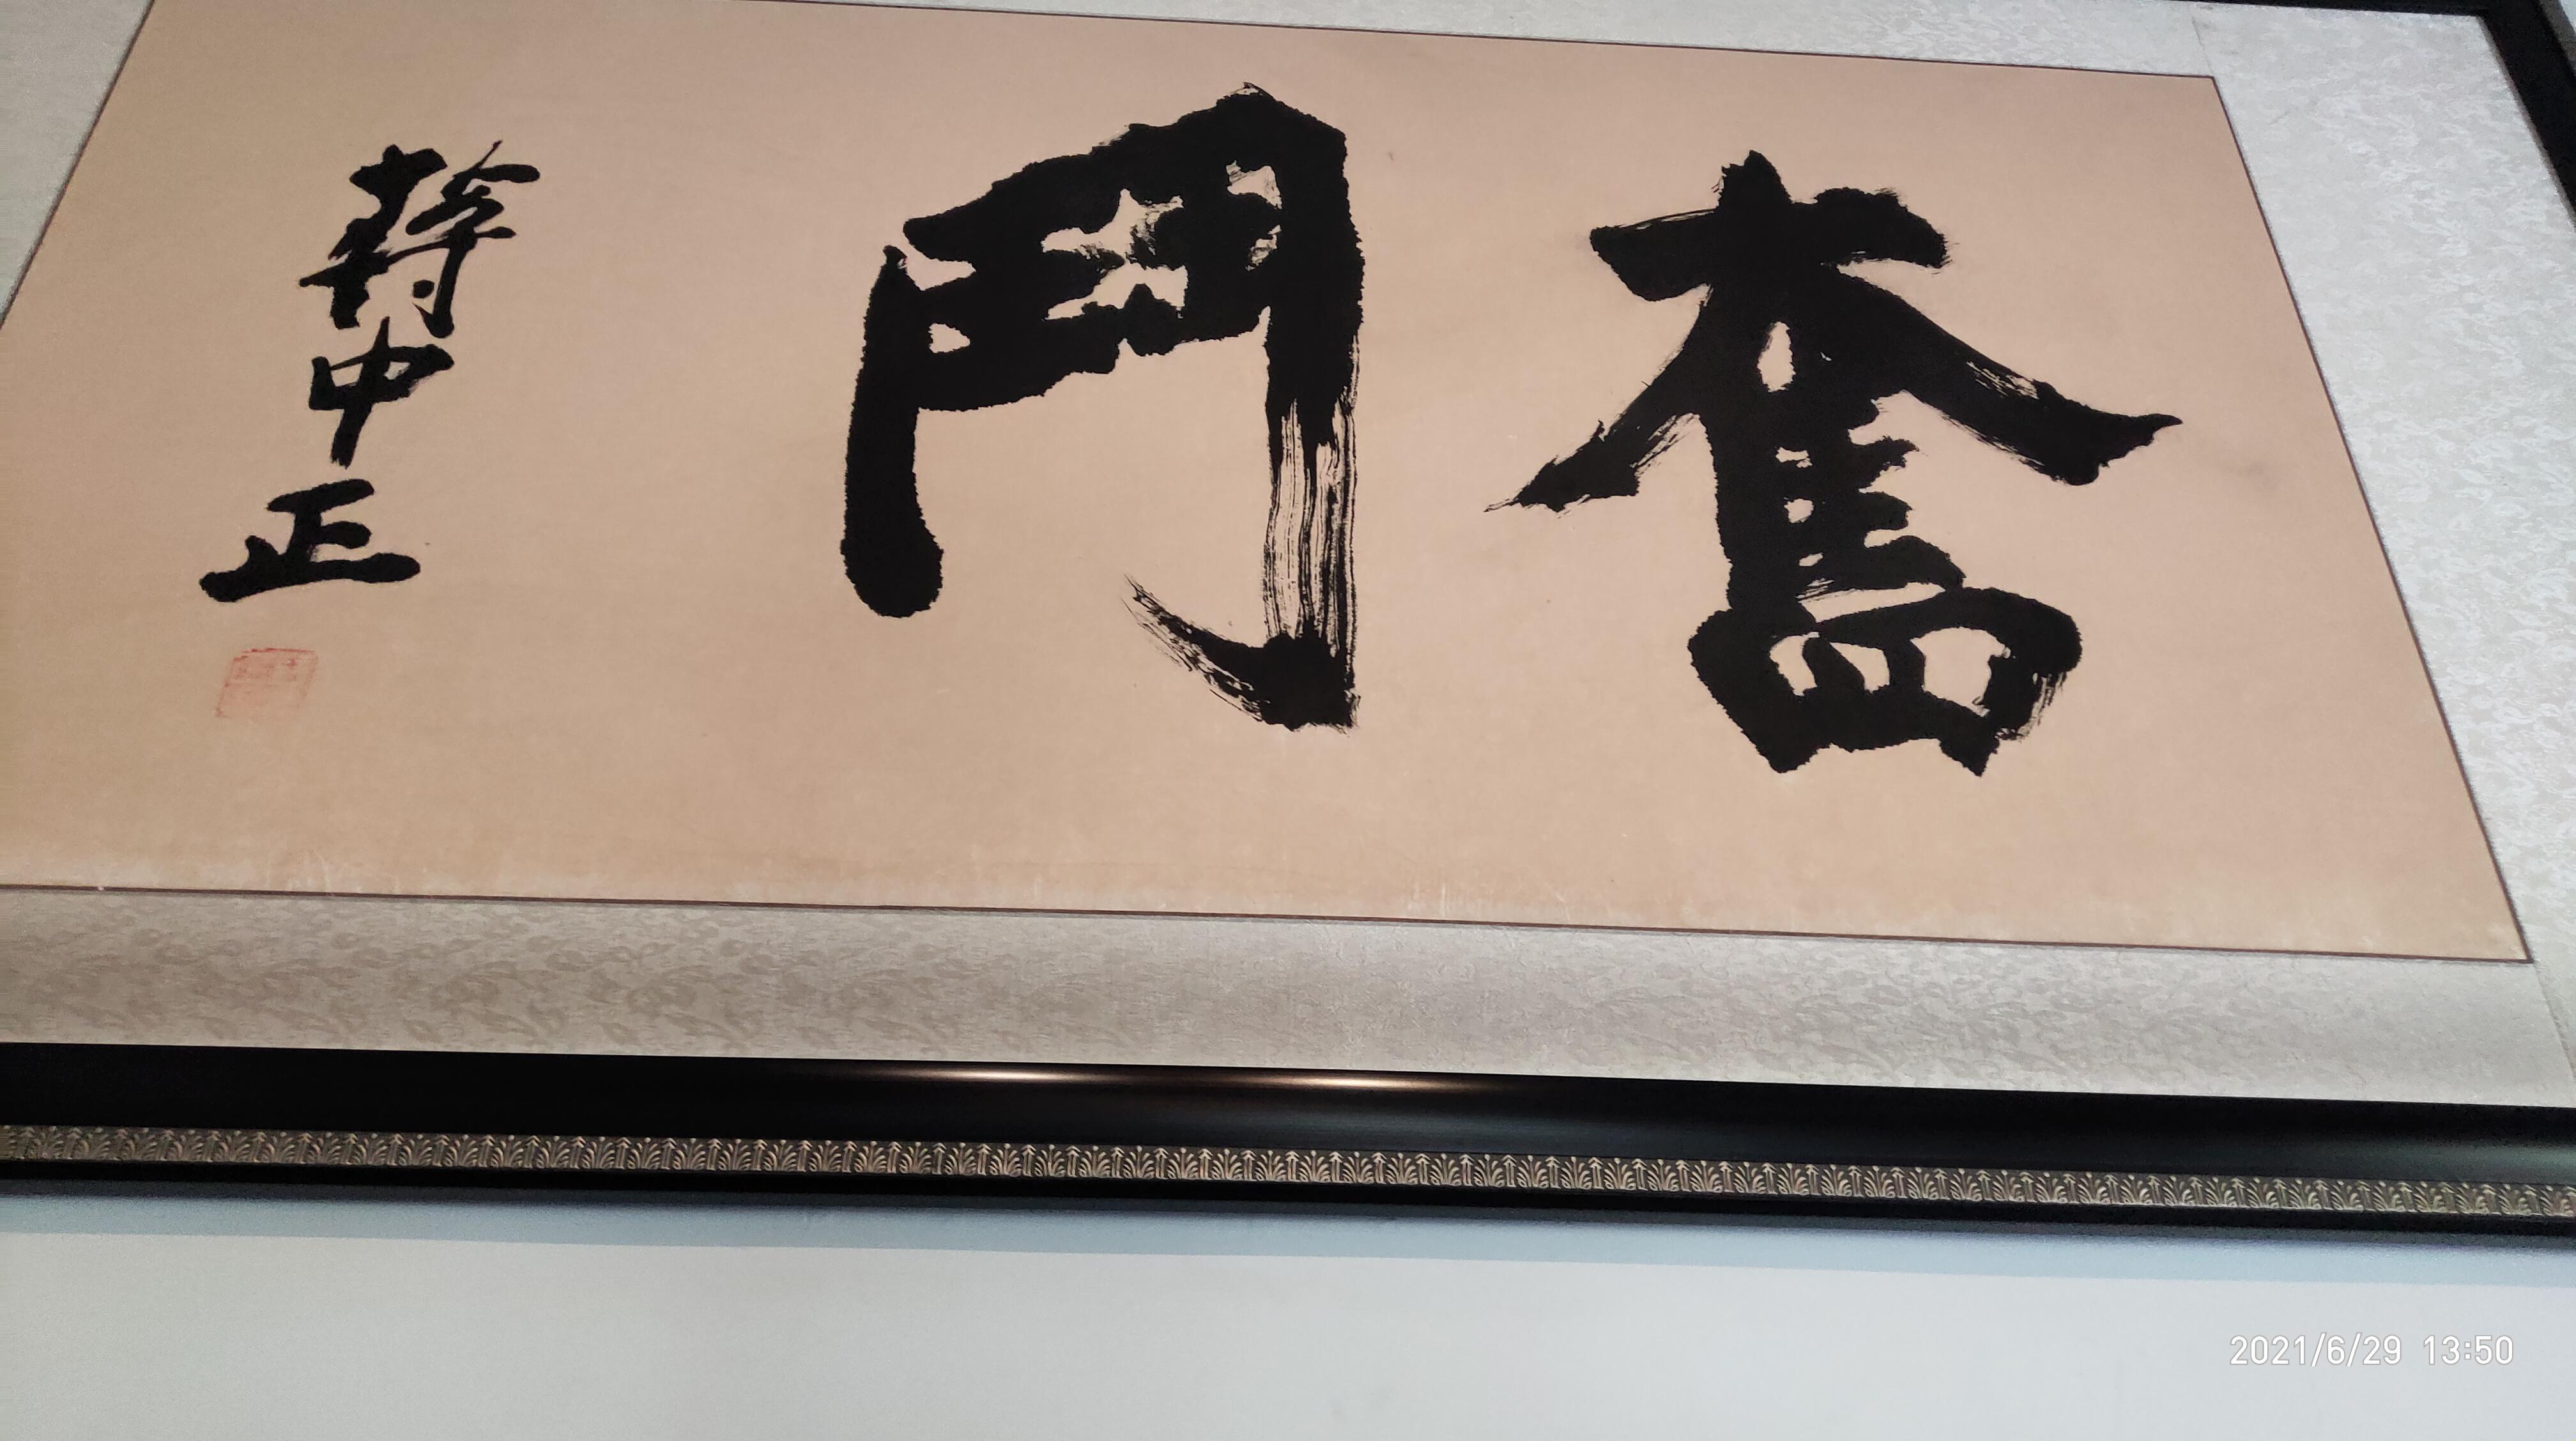 奮鬥
蔣中正
2021/6/29 13:50